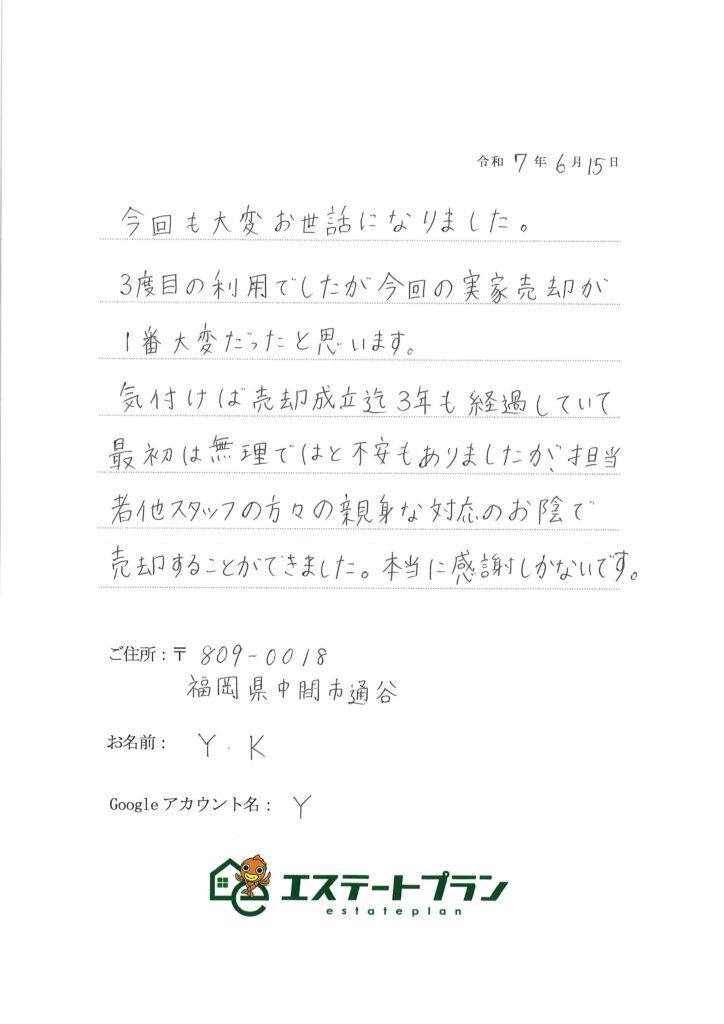 令和 7 年 6 月 15 日
今回も大変お世話になりました。
3度目の利用でしたが今回の実家売却が
1番大変だったと思います。
気付けば売却成立迄3年も経過していて
最初は無理ではと不安もありましたが、担当
者他スタッフの方々の親身な対応のお陰で
売却することができました。本当に感謝しかないです。
ご住所：〒 809-0018
福岡県中間市通谷
お名前： Y.K
Google アカウント名： Y
エステートプラン
estateplan